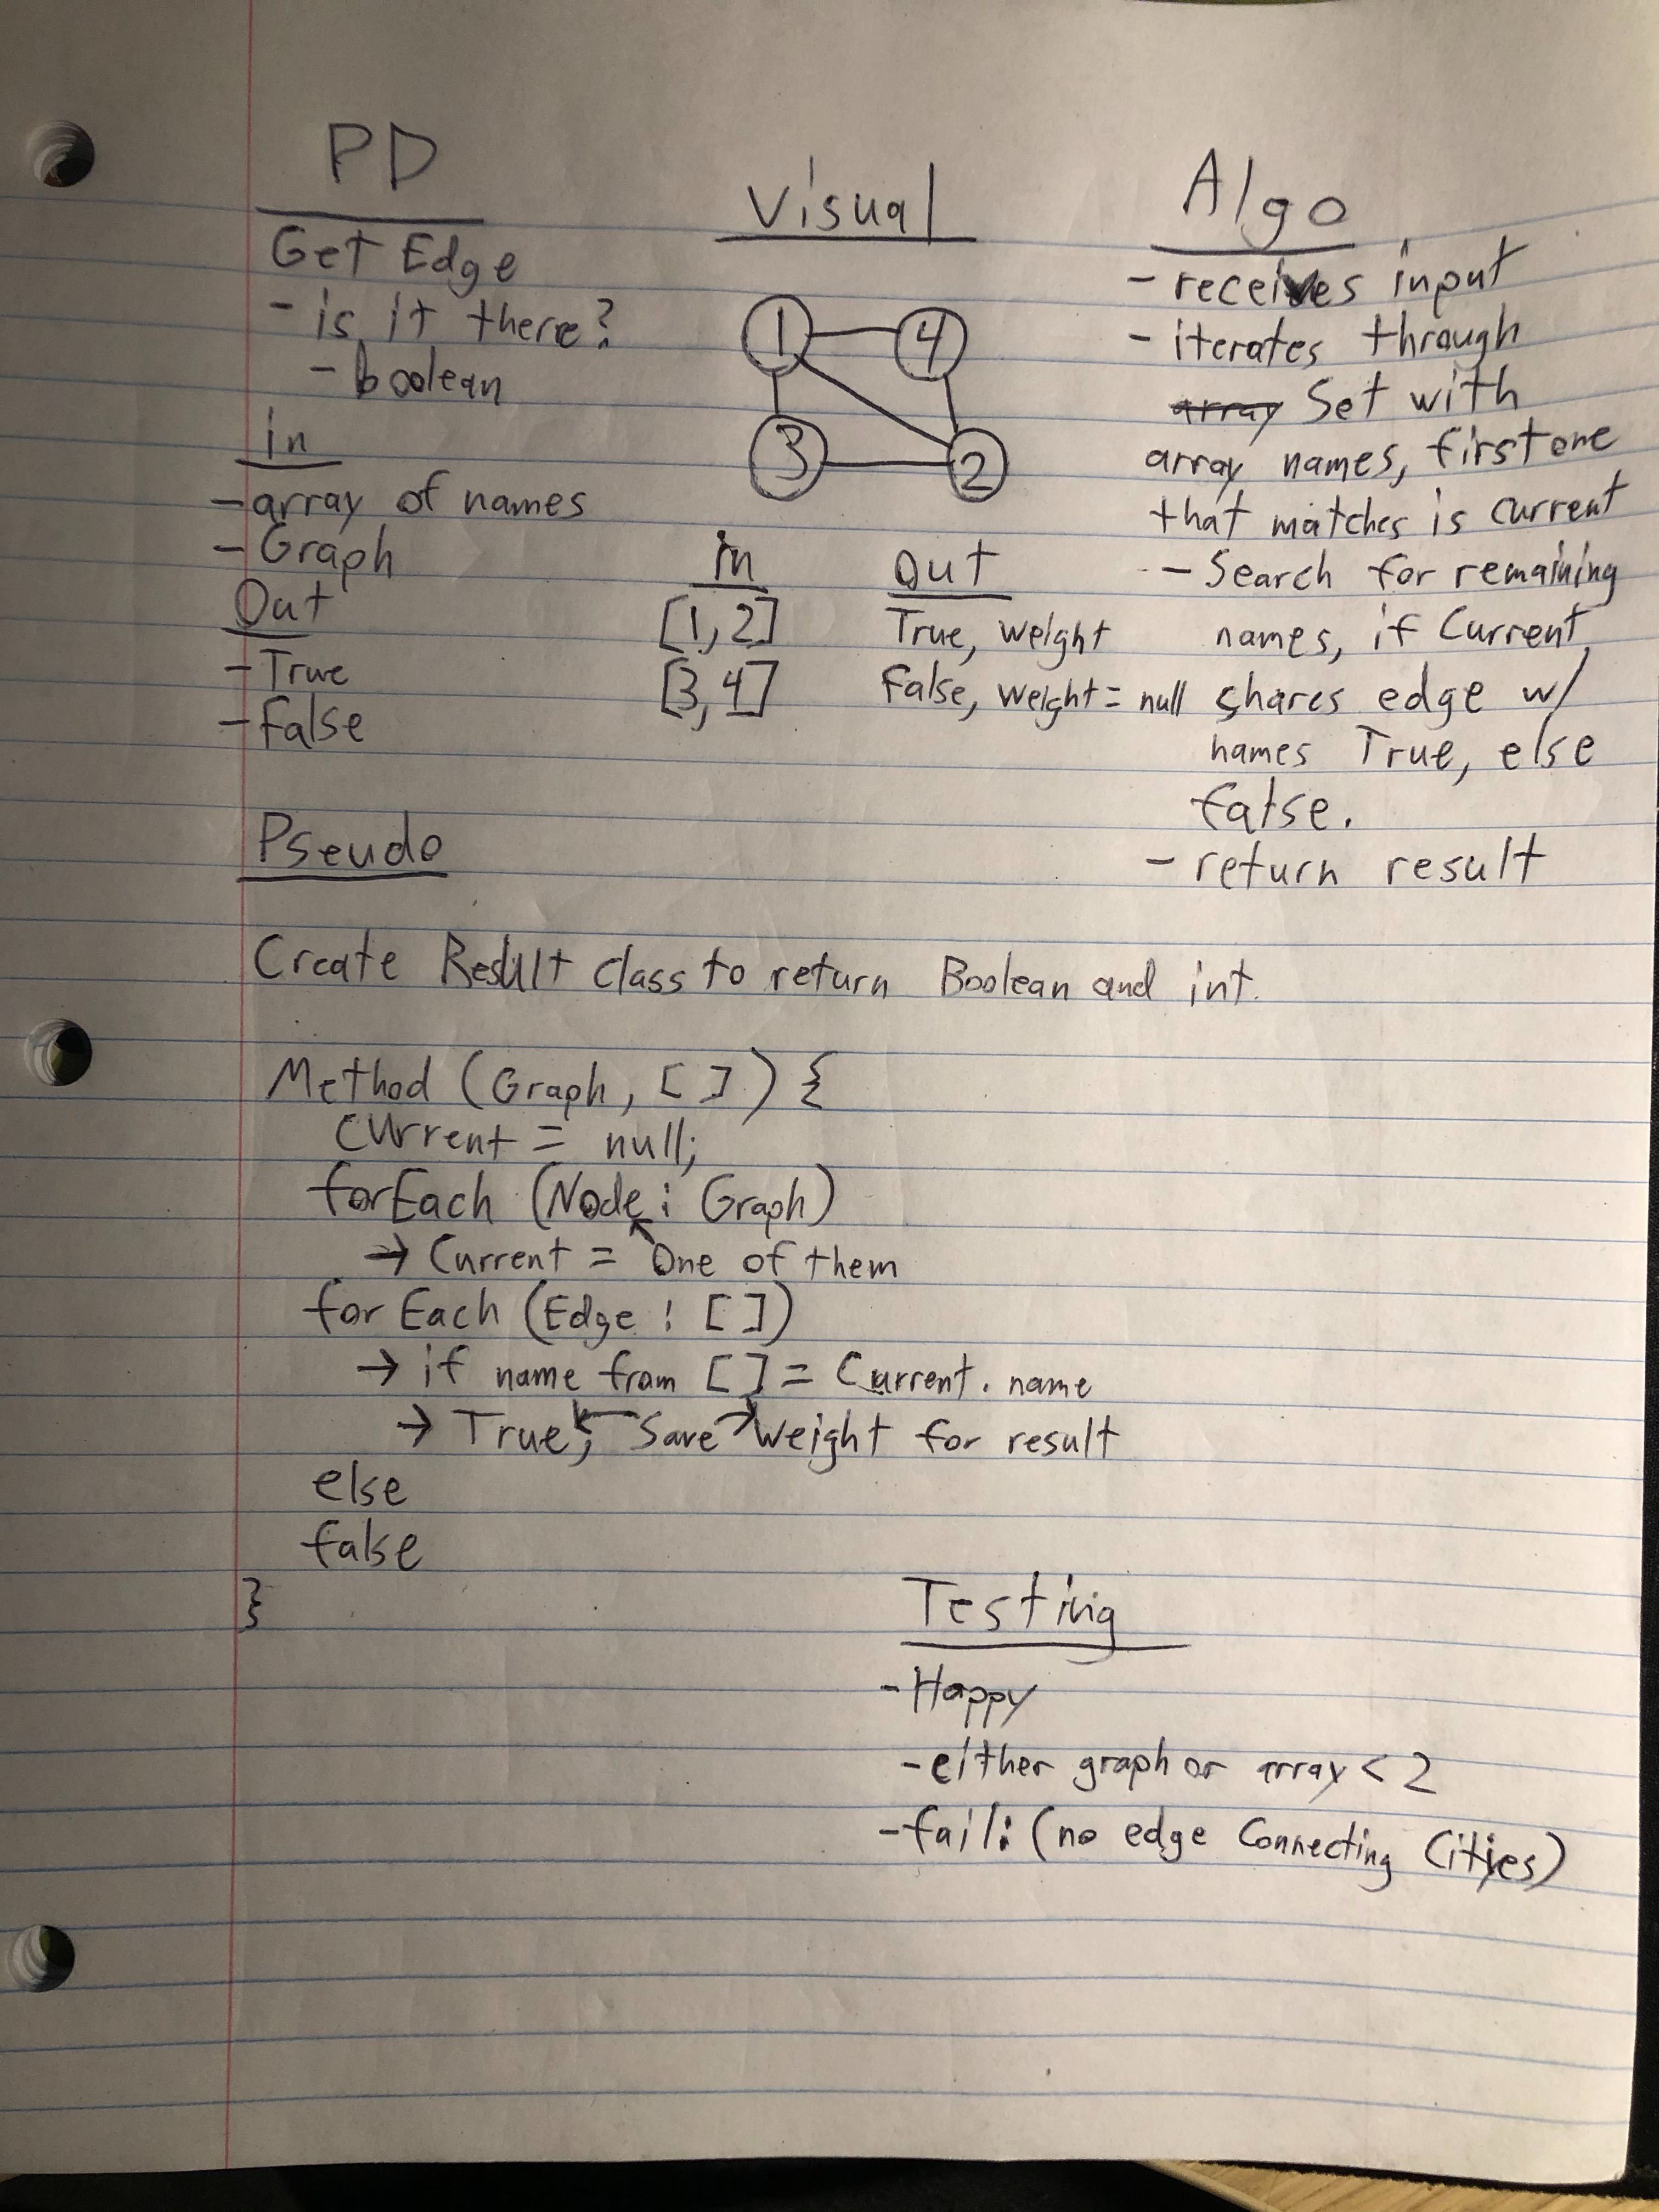 PD
Get Edge
- is it there?
- boolean
in
- array of names
- Graph
Out
- True
- false
Visual
1 4
3 2
in Out
[1,2] True, weight
[3,4] false, weight = null
Algo
- receives input
- iterates through
array Set with
array names, first one
that matches is current
- Search for remaining
names, if Current
shares edge w/
names True, else
false.
- return result
Pseudo
Create Result class to return Boolean and int.
Method (Graph, [ ]) {
Current = null;
forEach (Node : Graph)
→ Current = One of them
for Each (Edge : [ ])
→ if name from [ ] = Current.name
→ True, Save Weight for result
else
false
}
Testing
- Happy
- either graph or array < 2
- fail: (no edge Connecting Cities)